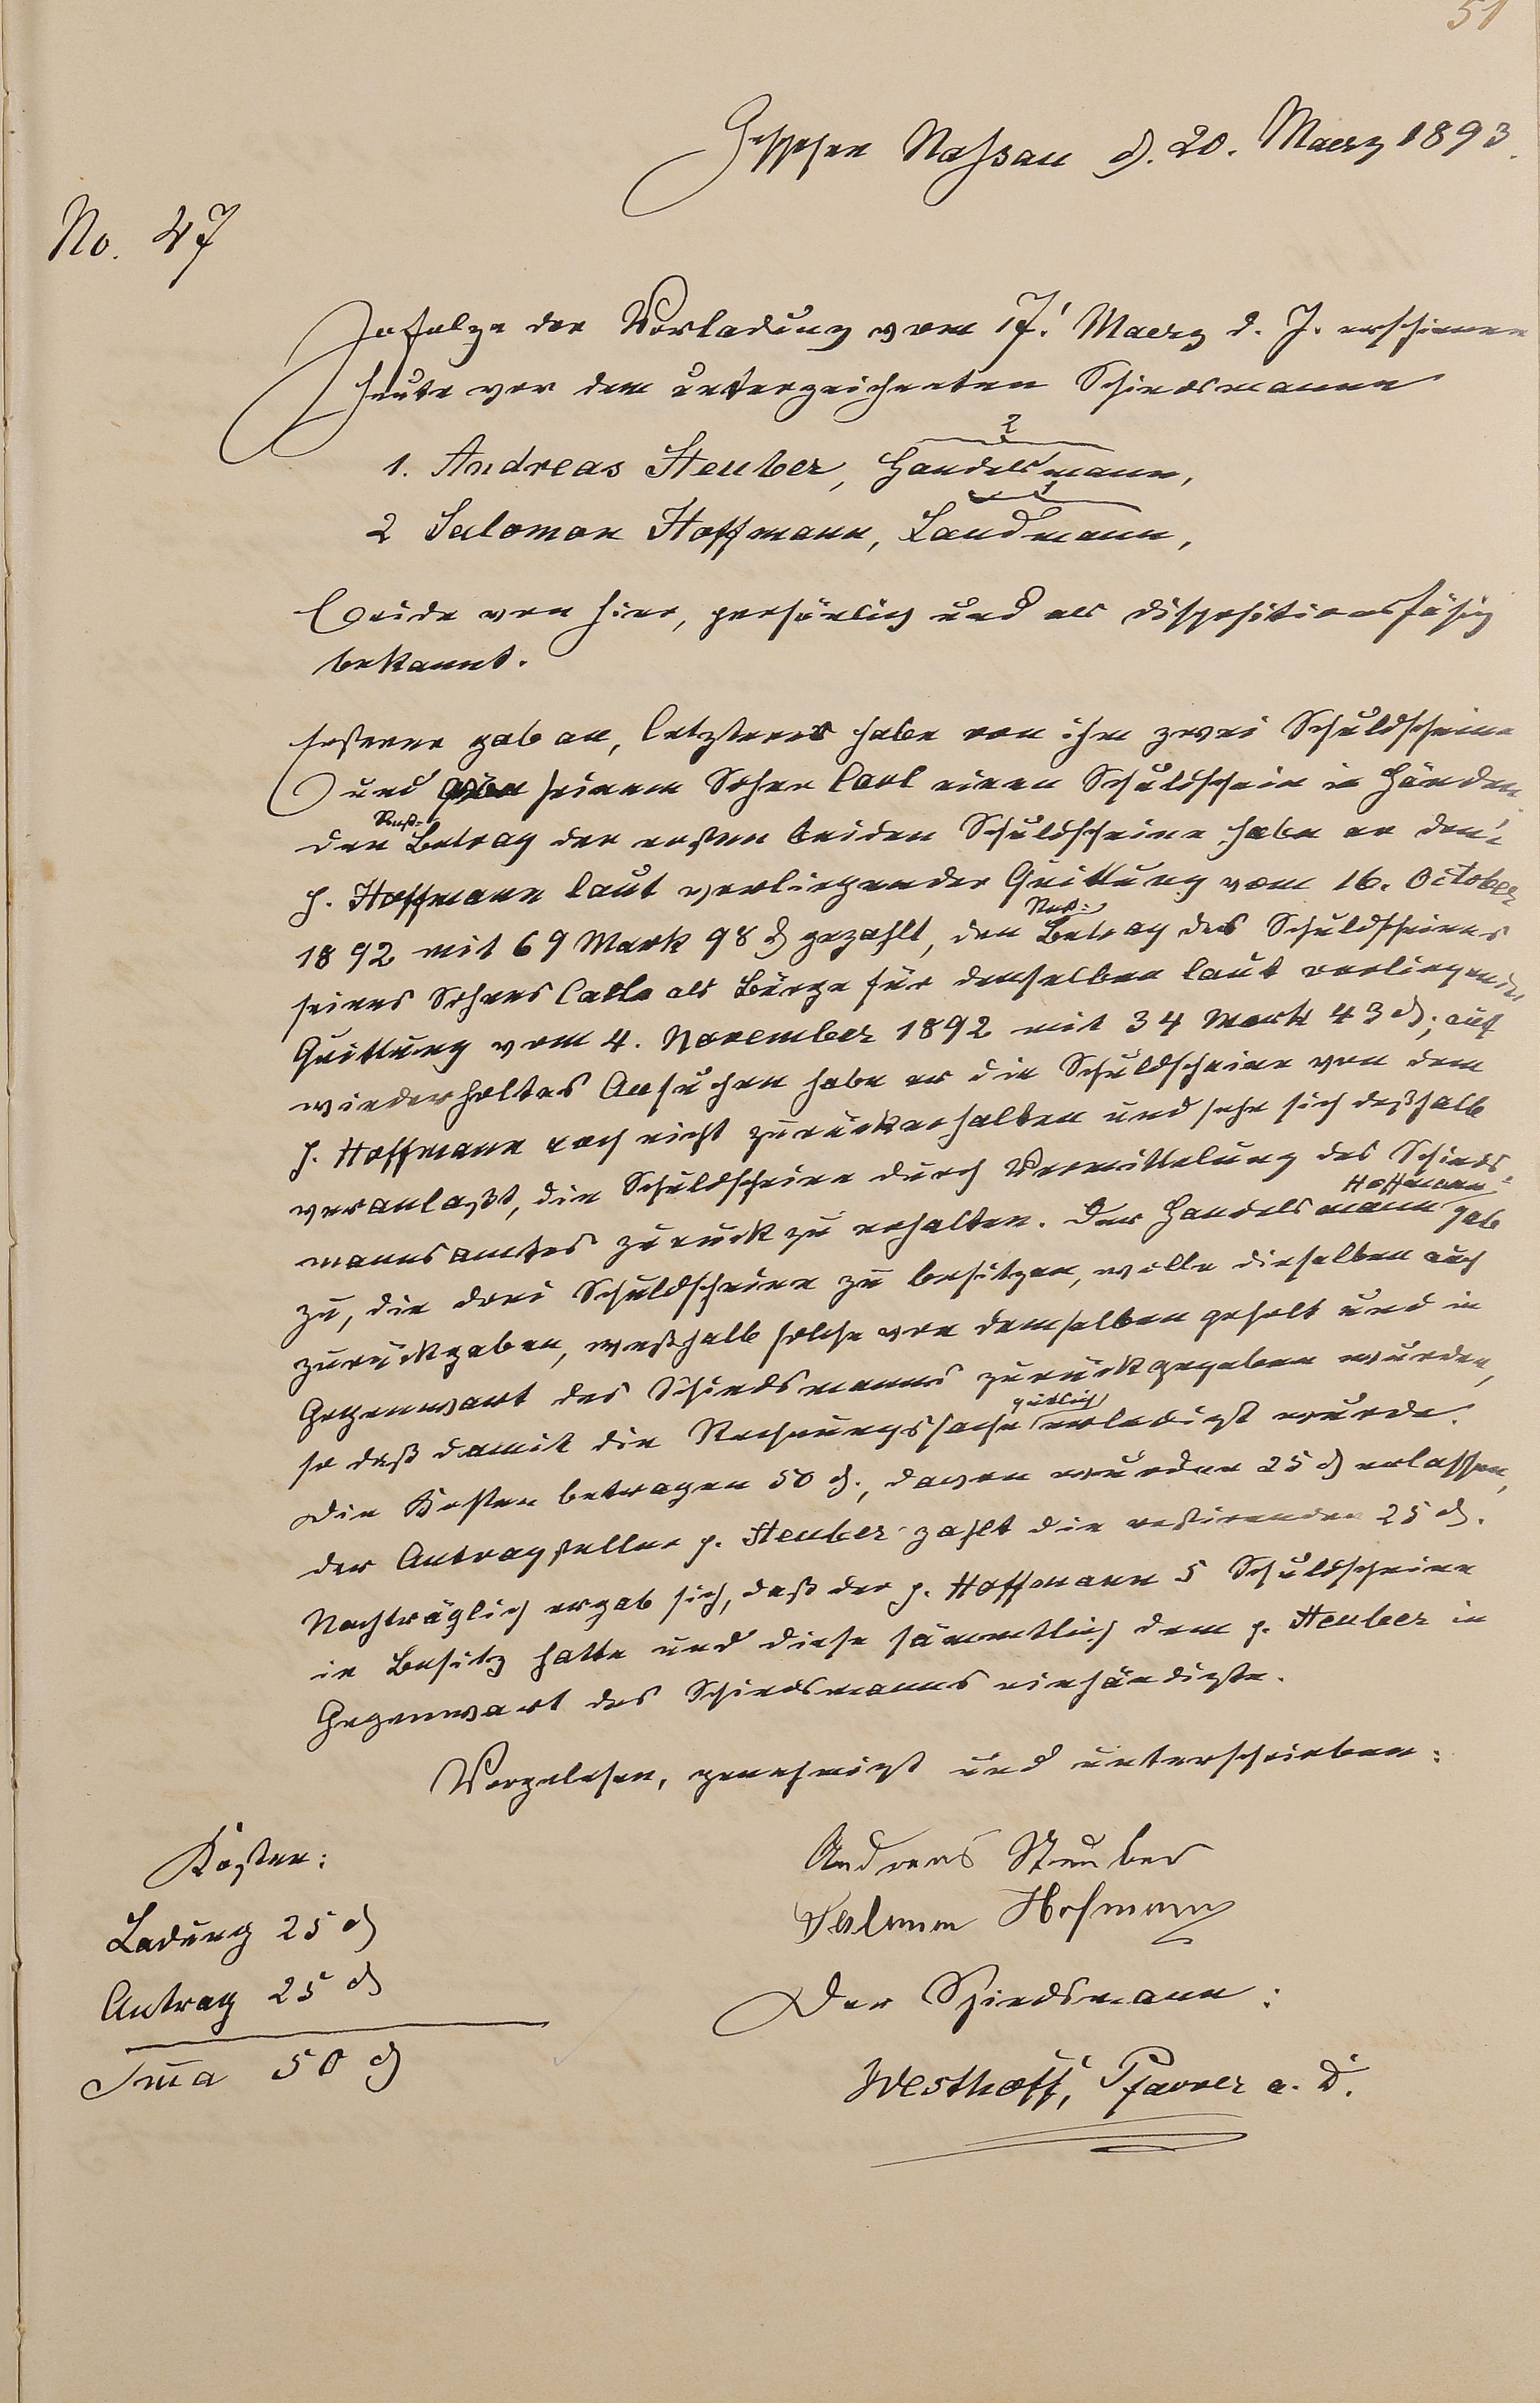 51
Hessen Nassau d. 20. Maerz 1893.
No. 47
Infolge der Vorladung vom 17. Maerz d. J. erschienen
heute vor dem unterzeichneten Schiedsmanne
2
1. Andreas Steuber, Handelsmann,
1
2 Salomon Hoffmann, Landmann,
beide von hier, persönlich und als dispositionsfähig
bekannt.
Ersterer gab an, letzterer habe von ihm zwei Schuldscheine
und von seinem Sohne Carl einen Schuldschein in Händen.
Rest-
Den Betrag der ersten beiden Schuldscheine habe er dem
p. Hoffmann laut vorliegender Quittung vom 16. October
Rest-
1892 mit 69 Mark 98 ₰ gezahlt, den Betrag des Schuldscheines
seines Sohnes Carl als Bürge für denselben laut vorliegender
Quittung vom 4. November 1892 mit 34 Mark 43 ₰; auf
wiederholtes Ansuchen habe er die Schuldscheine von dem
p. Hoffmann noch nicht zurückerhalten und sehe sich deßhalb
veranlaßt, die Schuldscheine durch Vermittelung des Schieds-
Hoffmann
mannsamtes zurück zu erhalten. Der Handelsmann gab
zu, die drei Schuldscheine zu besitzen, wolle dieselben auch
zurückgeben, weßhalb solche von demselben geholt und in
Gegenwart des Schiedsmanns zurückgegeben wurden,
gütlich
so daß damit die Rechnungssache erledigt wurde.
Die Kosten betragen 50 ₰., davon wurden 25 ₰ erlassen,
der Antragsteller p. Steuber zahlt die restirenden 25 ₰.
Nachträglich ergab sich, daß der p. Hoffmann 5 Schuldscheine
in Besitz hatte und diese sämmtlich dem p. Steuber in
Gegenwart des Schiedsmanns einhändigte.
Vorgelesen, genehmigt und unterschrieben:
Andreas Steuber
Salomon Hofmann
Der Schiedsmann:
Westhoff, Pfarrer a. D.
Kosten:
Ladung 25 ₰
Antrag 25 ₰
Sm̄a 50 ₰